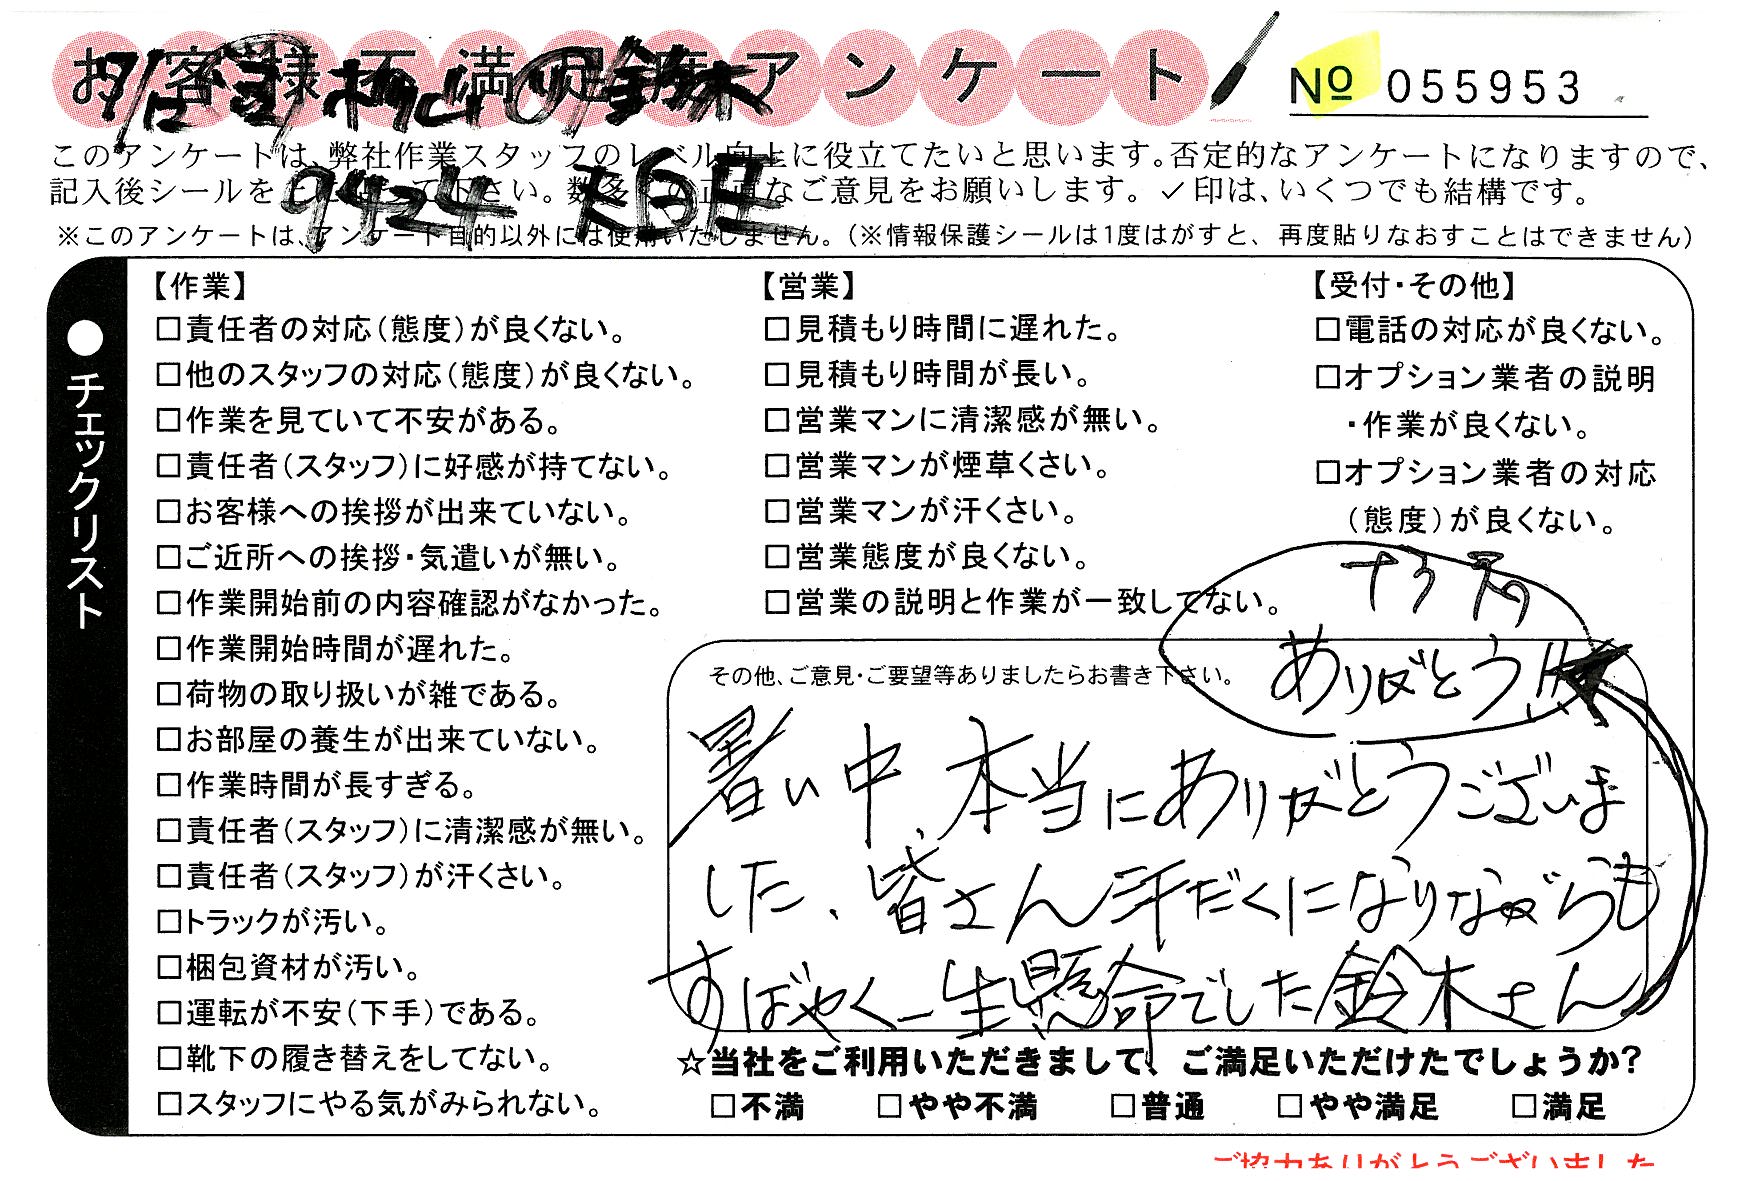 お客様不満足度アンケート
№ 055953
鈴木
9424
このアンケートは、弊社作業スタッフのレベル向上に役立てたいと思います。否定的なアンケートになりますので、
記入後シールを上に貼って下さい。数多くの正直なご意見をお願いします。✓印は、いくつでも結構です。
※このアンケートは、アンケート目的以外には使用いたしません。(※情報保護シールは1度はがすと、再度貼りなおすことはできません)
●チェックリスト
【作業】
□責任者の対応(態度)が良くない。
□他のスタッフの対応(態度)が良くない。
□作業を見ていて不安がある。
□責任者(スタッフ)に好感が持てない。
□お客様への挨拶が出来ていない。
□ご近所への挨拶・気遣いが無い。
□作業開始前の内容確認がなかった。
□作業開始時間が遅れた。
□荷物の取り扱いが雑である。
□お部屋の養生が出来ていない。
□作業時間が長すぎる。
□責任者(スタッフ)に清潔感が無い。
□責任者(スタッフ)が汗くさい。
□トラックが汚い。
□梱包資材が汚い。
□運転が不安(下手)である。
□靴下の履き替えをしてない。
□スタッフにやる気がみられない。
【営業】
□見積もり時間に遅れた。
□見積もり時間が長い。
□営業マンに清潔感が無い。
□営業マンが煙草くさい。
□営業マンが汗くさい。
□営業態度が良くない。
□営業の説明と作業が一致してない。
【受付・その他】
□電話の対応が良くない。
□オプション業者の説明
・作業が良くない。
□オプション業者の対応
(態度)が良くない。
ありがとう!!
その他、ご意見・ご要望等ありましたらお書き下さい。
暑い中、本当にありがとうございま
した、皆さん汗だくになりながらも
すばやく一生懸命でした鈴木さん
☆当社をご利用いただきまして、ご満足いただけたでしょうか?
□不満 □やや不満 □普通 □やや満足 □満足
ご協力ありがとうございました